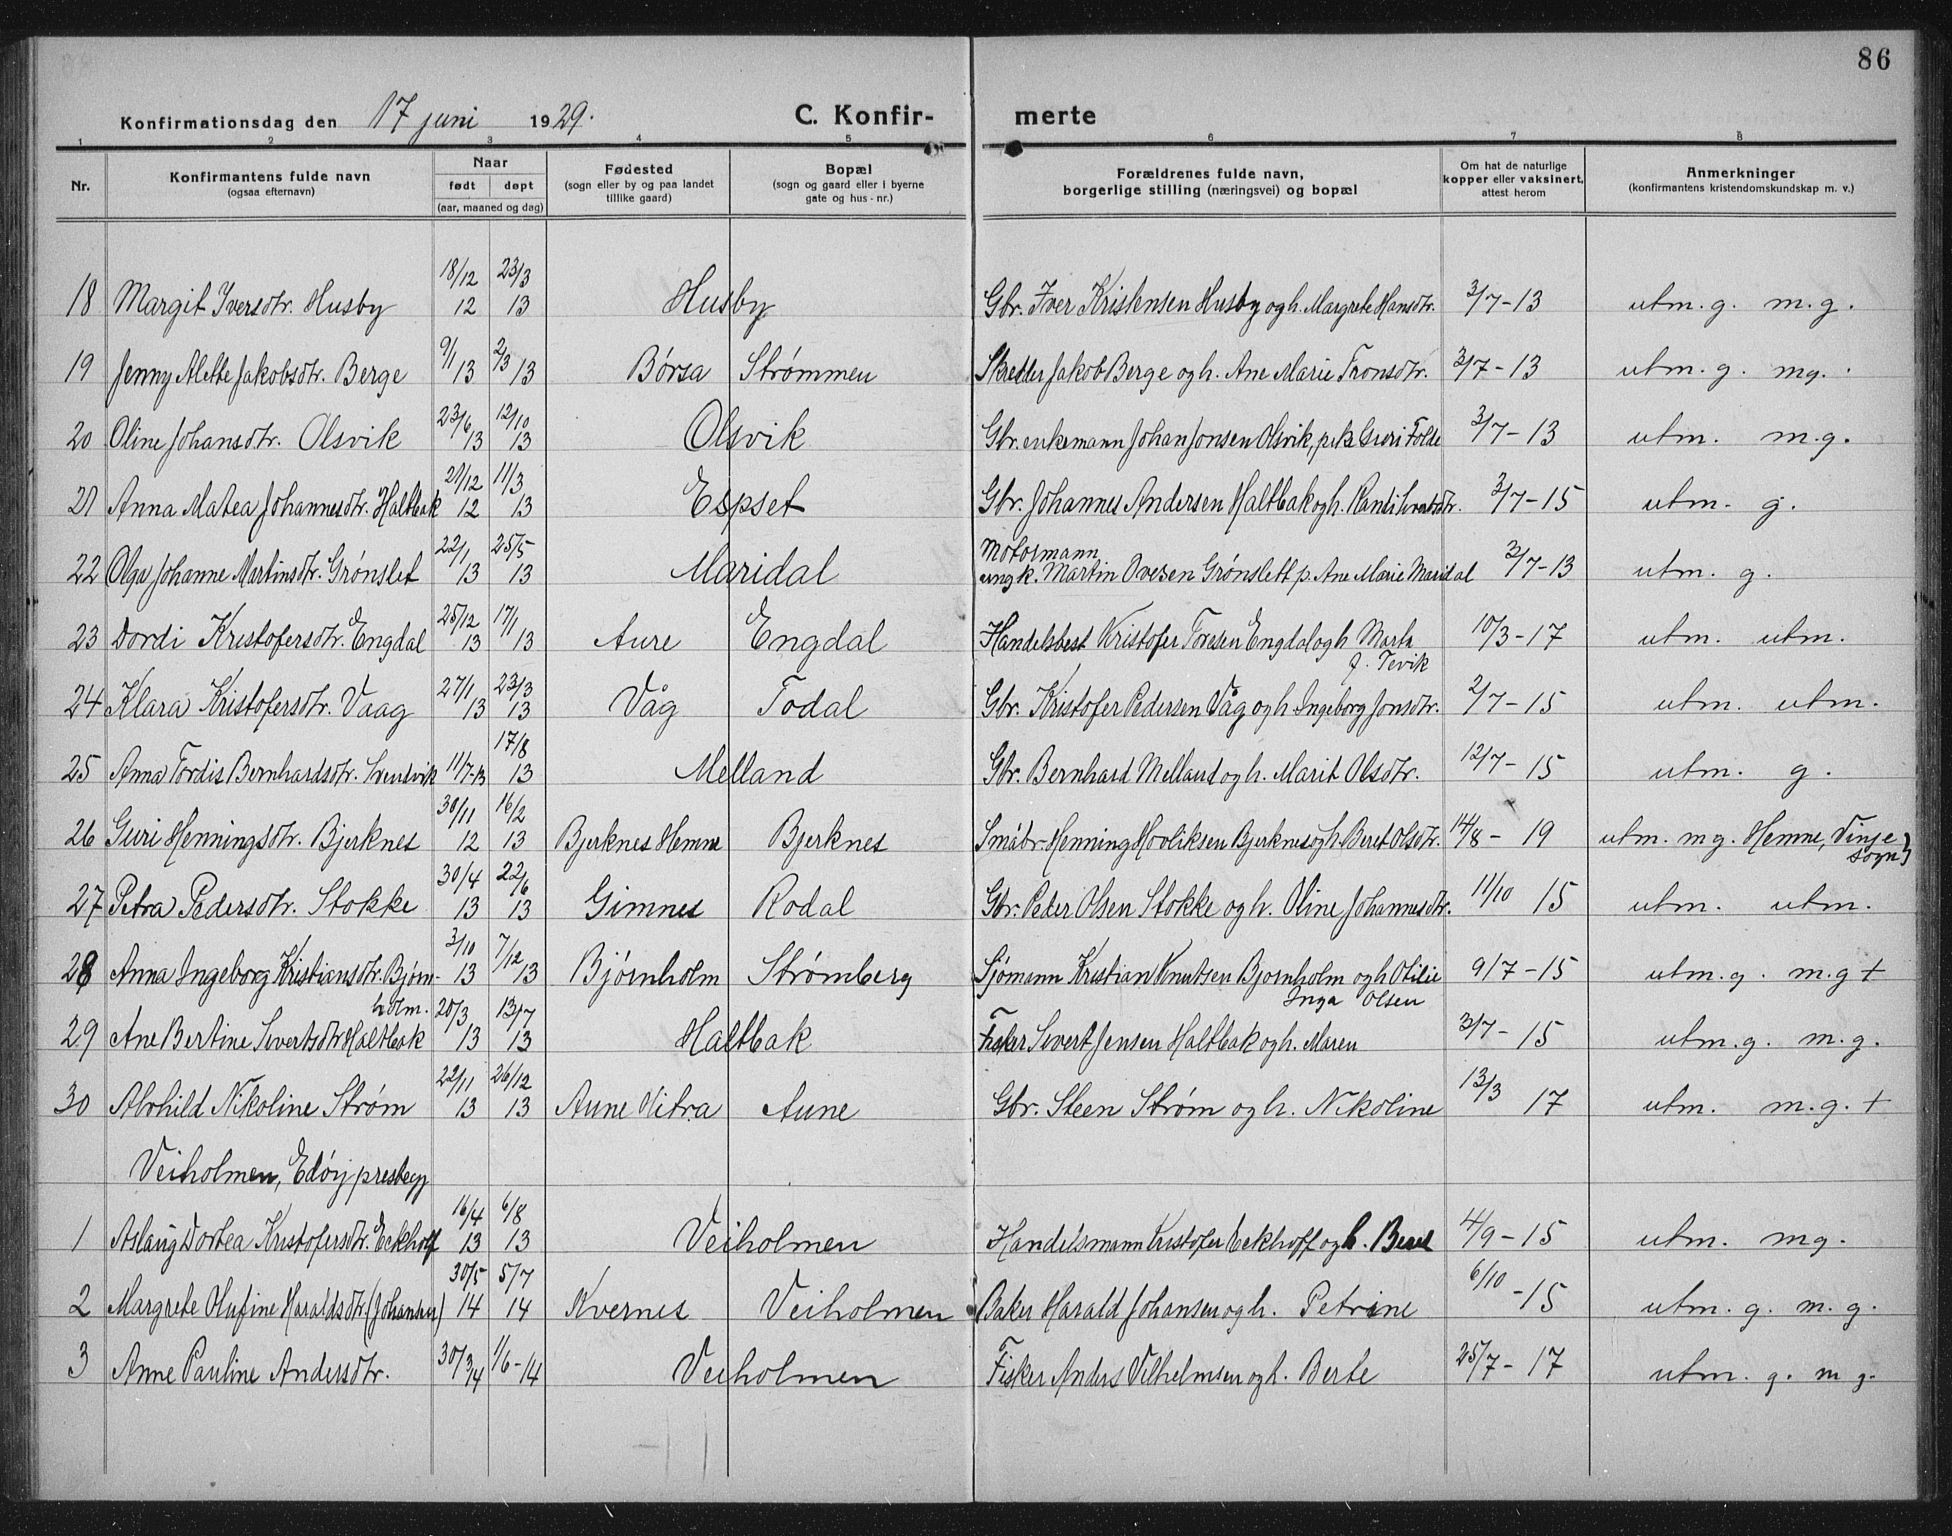 86
Konfirmationsdag den 17 juni 1929. C. Konfir- merte
1 2 3 4 5 6 7 8
Nr. Konfirmantens fulde navn (ogsaa efternavn) Naar født døpt (aar, maaned og dag) Fødested (sogn eller by og paa landet tillike gaard) Bopæl (sogn og gaard eller i byerne gate og hus-nr.) Forældrenes fulde navn, borgerlige stilling (næringsvei) og bopæl Om hat de naturlige kopper eller vaksinert, attest herom Anmerkninger (konfirmantens kristendomskundskap m. v.)
18 Margit Iversdtr. Husby 18/12 12 23/3 13 Husby Gbr. Iver Kristensen Husby og h. Margrete Hansdtr. 3/7-13 utm. g. m.g.
19 Jenny Alette Jakobsdtr. Berge 9/1 13 2/3 13 Børsa Strømmen Skredder Jakob Berge og h. Ane Marie Tronsdtr. 3/7-13 utm. g. mg.
20 Oline Johansdtr. Olsvik 23/6 13 12/10 13 Olsvik Gbr. enkemann Johan Jonsen Olsvik, Guri Folde 3/7-13 utm. m.g.
21 Anna Matea Johannesdtr. Haltbak 21/12 12 11/3 13 Espset Gbr. Johannes Andersen Haltbak og h. Randi 3/7-15 utm. g.
22 Olga Johanne Martinsdtr. Grønslet 22/1 13 25/5 13 Maridal Motormann ungk. Martin Ovesen Grønslett p. Ane Marie Maridal 3/7-13 utm. g.
23 Dordi Kristofersdtr. Engdal 25/12 13 17/1 13 Aure Engdal Handelsbest Kristofer Toresen Engdal og h Marta f. Tevik 10/3-17 utm. utm.
24 Klara Kristofersdtr. Vaag 27/1 13 23/3 13 Våg Todal Gbr. Kristofer Pedersen Våg og h Ingeborg Jonsdtr. 2/7-15 utm. utm.
25 Anna Tordis Bernhardsdtr. 11/7-13 17/8 13 Melland Gbr. Bernhard Melland og h. Marit Olsdtr. 12/7-15 utm. g.
26 Guri Henningsdtr. Bjerknes 30/11 12 16/2 13 Bjerknes Hemne Bjerknes Småbr. Henning Bjerknes og h. Beret Olsdtr. 14/8-19 utm. mg. Hemne, Vinje sogn)
27 Petra Pedersdtr. Stokke 30/4 13 22/6 13 Gimnes Rodal Gbr. Peter Olsen Stokke og h. Oline Johannesdtr. 11/10 15 utm. utm.
28 Anna Ingeborg Kristiansdtr. Bjørn-holm. 3/10 13 7/12 13 Bjørnholm Strømberg Sjømann Kristian Knutsen Bjornholm og h Otilie Inga Olsen 9/7-15 utm. g. m.g +
29 Ane Bertine Sivertsdtr Haltbak 20/3 13 13/7 13 Haltbak Fisker Sivert Jensen Haltbak og h. Maren 3/7-15 utm. g. m.g.
30 Alvhild Nikoline Strøm 22/11 13 26/12 13 Aune Hitra Aune Gbr. Steen Strøm og h. Nikoline 13/3 17 utm. m.g. +
Veiholmen, Edøy prestegj
1 Aslaug Dortea Kristofersdtr. Eckhoff 16/4 13 6/8 13 Veiholmen Handelsmann Kristofer Eckhoff og h. Beret 4/9-15 utm. mg.
2 Margrete Olufine Haraldsdtr (Johansen) 30/5 14 5/7 14 Kvernes Veiholmen Baker Harald Johansen og h. Petrine 6/10-15 utm. g. m. g.
3 Anne Pauline Andersdtr. 30/3 14 1/6-14 Veiholmen Fisker Anders Vilhelmsen og h. Berte 25/7-17 utm. g. m g.